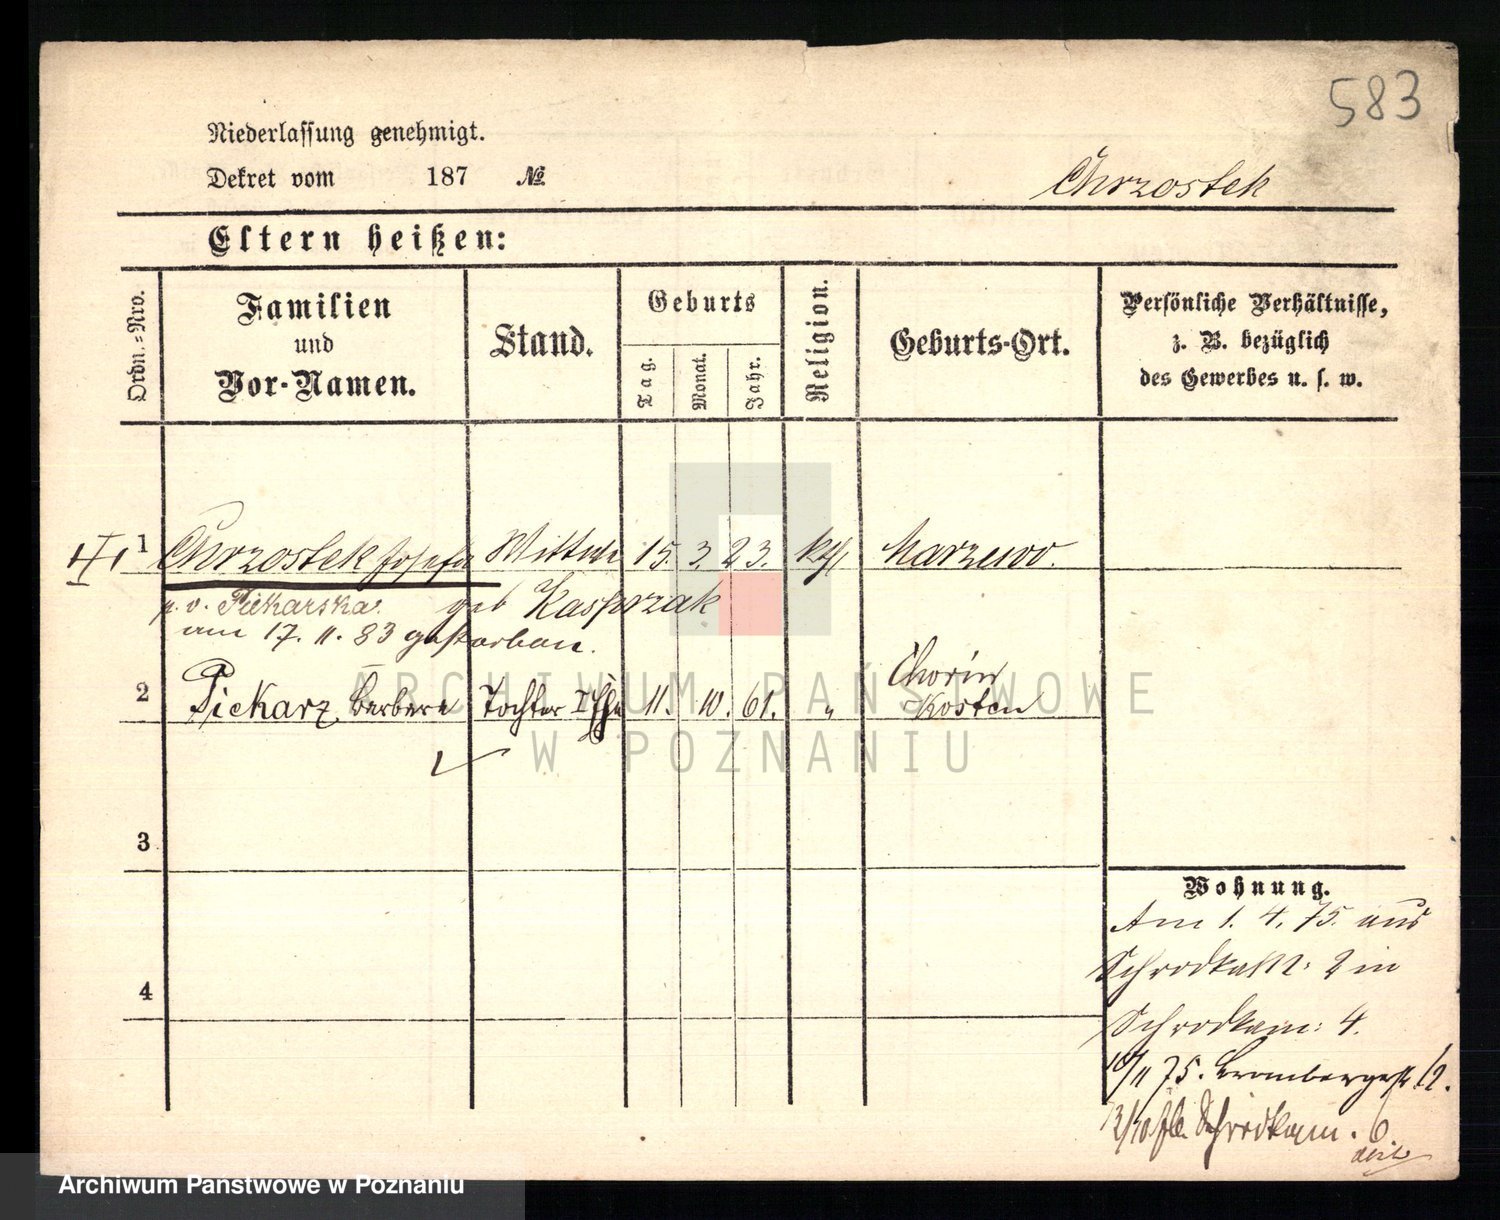 583
Niederlassung genehmigt.
Dekret vom 187 №
Chrzostek
Eltern heißen:
Ordn.-Nro.
Familien
und
Vor-Namen.
Stand.
Geburts
Tag.
Monat.
Jahr.
Religion.
Geburts-Ort.
Persönliche Verhältnisse,
z. B. bezüglich
des Gewerbes u. s. w.
1 Chrzostek Josefa Wittwe 15. 3. 23. kth Marzewo.
p. v. Piekarska. geb Kasprzak
am 17. 11. 83 gestorben.
Chorin
2 Piekarz Barbara Tochter I Ehe 11. 10. 61. " Kosten
3
4
Wohnung.
Am 1. 4. 75. aus
2 in
4.
10/11 75. Brombergerstr 12.
6
ARCHIWUM PAŃSTWOWE
W POZNANIU
Archiwum Państwowe w Poznaniu